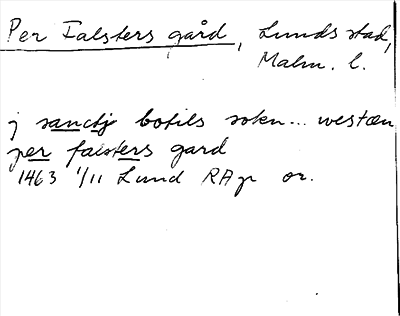 Per Falsters gård, Lunds stad,
Malm. l.
j sanctj botils sokn... westæn
per falsters gard
1463 1/11 Lund RAp or.